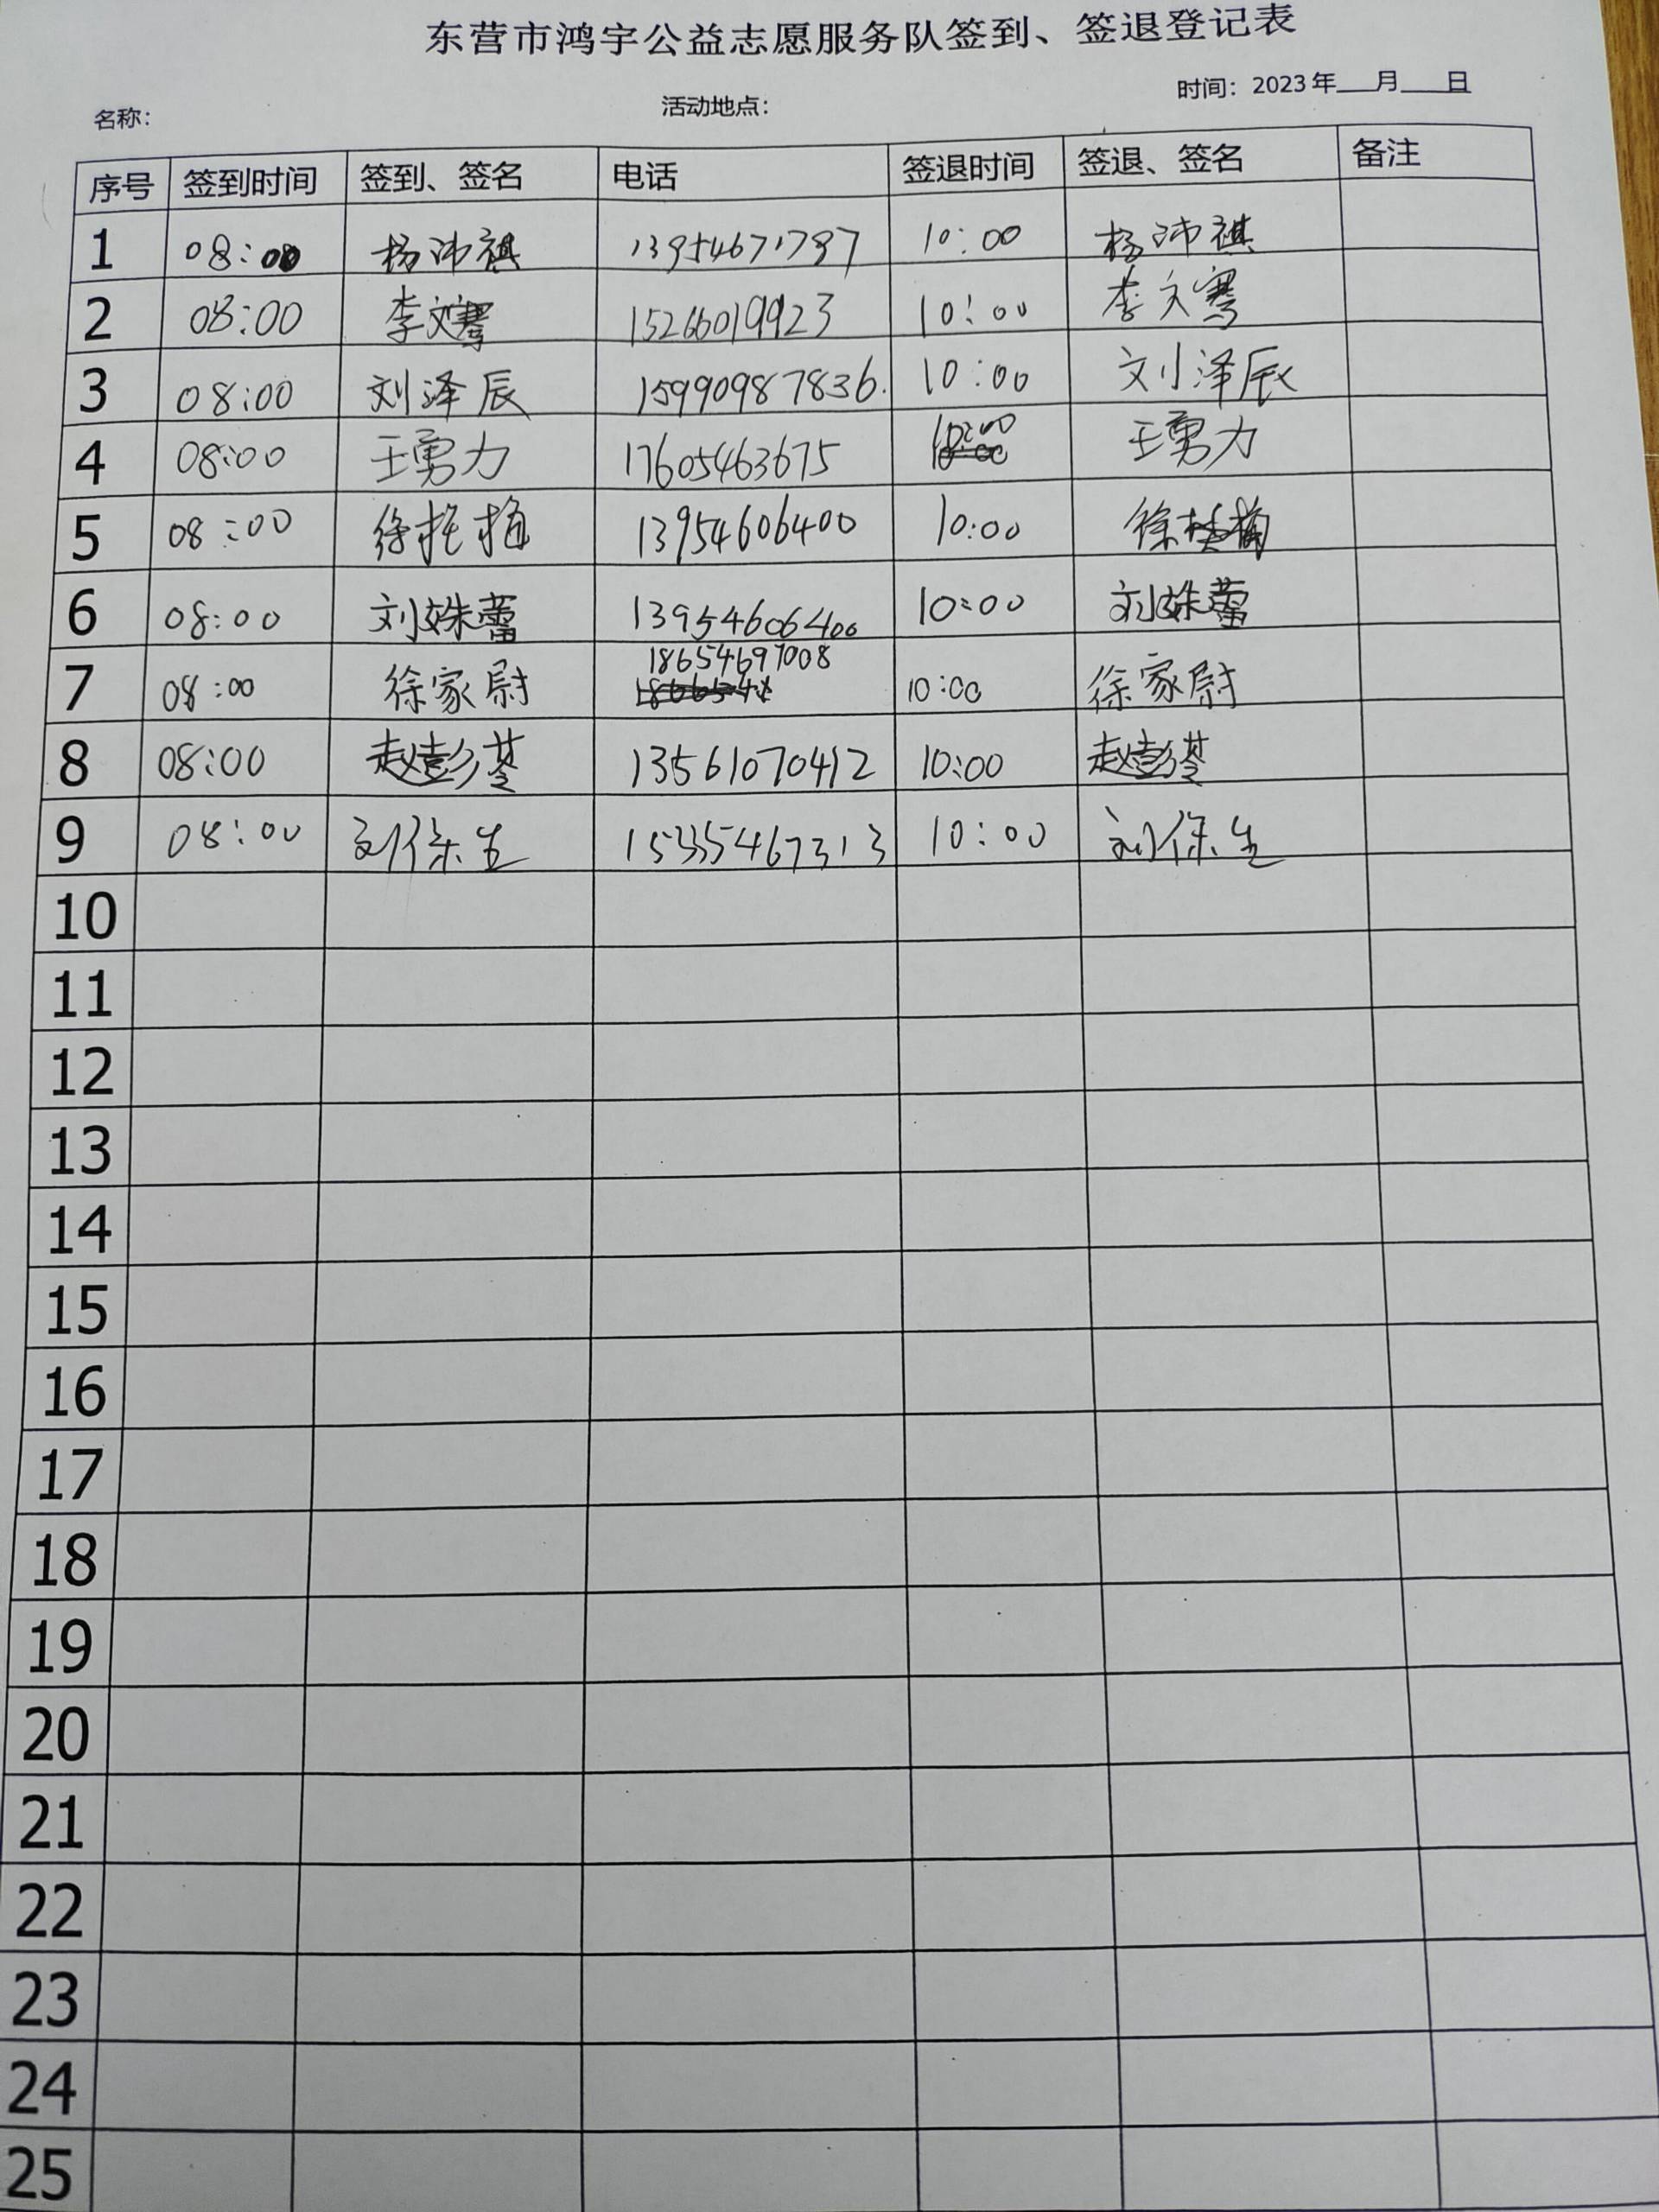 东营市鸿宇公益志愿服务队签到、签退登记表
名称： 活动地点： 时间：2023年___月___日
序号 签到时间 签到、签名 电话 签退时间 签退、签名 备注
1 08:00 杨沛祺 13954671797 10:00 杨沛祺
2 08:00 李文骞 15266019923 10:00 李文骞
3 08:00 刘泽辰 15990987836. 10:00 刘泽辰
4 08:00 王勇力 17605463675 10:00 王勇力
5 08:00 徐 梅 13954606400 10:00 徐 梅
6 08:00 刘姝蕾 13954606400 10:00 刘姝蕾
7 08:00 徐家尉 18654697008 10:00 徐家尉
8 08:00 赵彭苓 13561070412 10:00 赵彭苓
9 08:00 刘保生 15335467313 10:00 刘保生
10
11
12
13
14
15
16
17
18
19
20
21
22
23
24
25